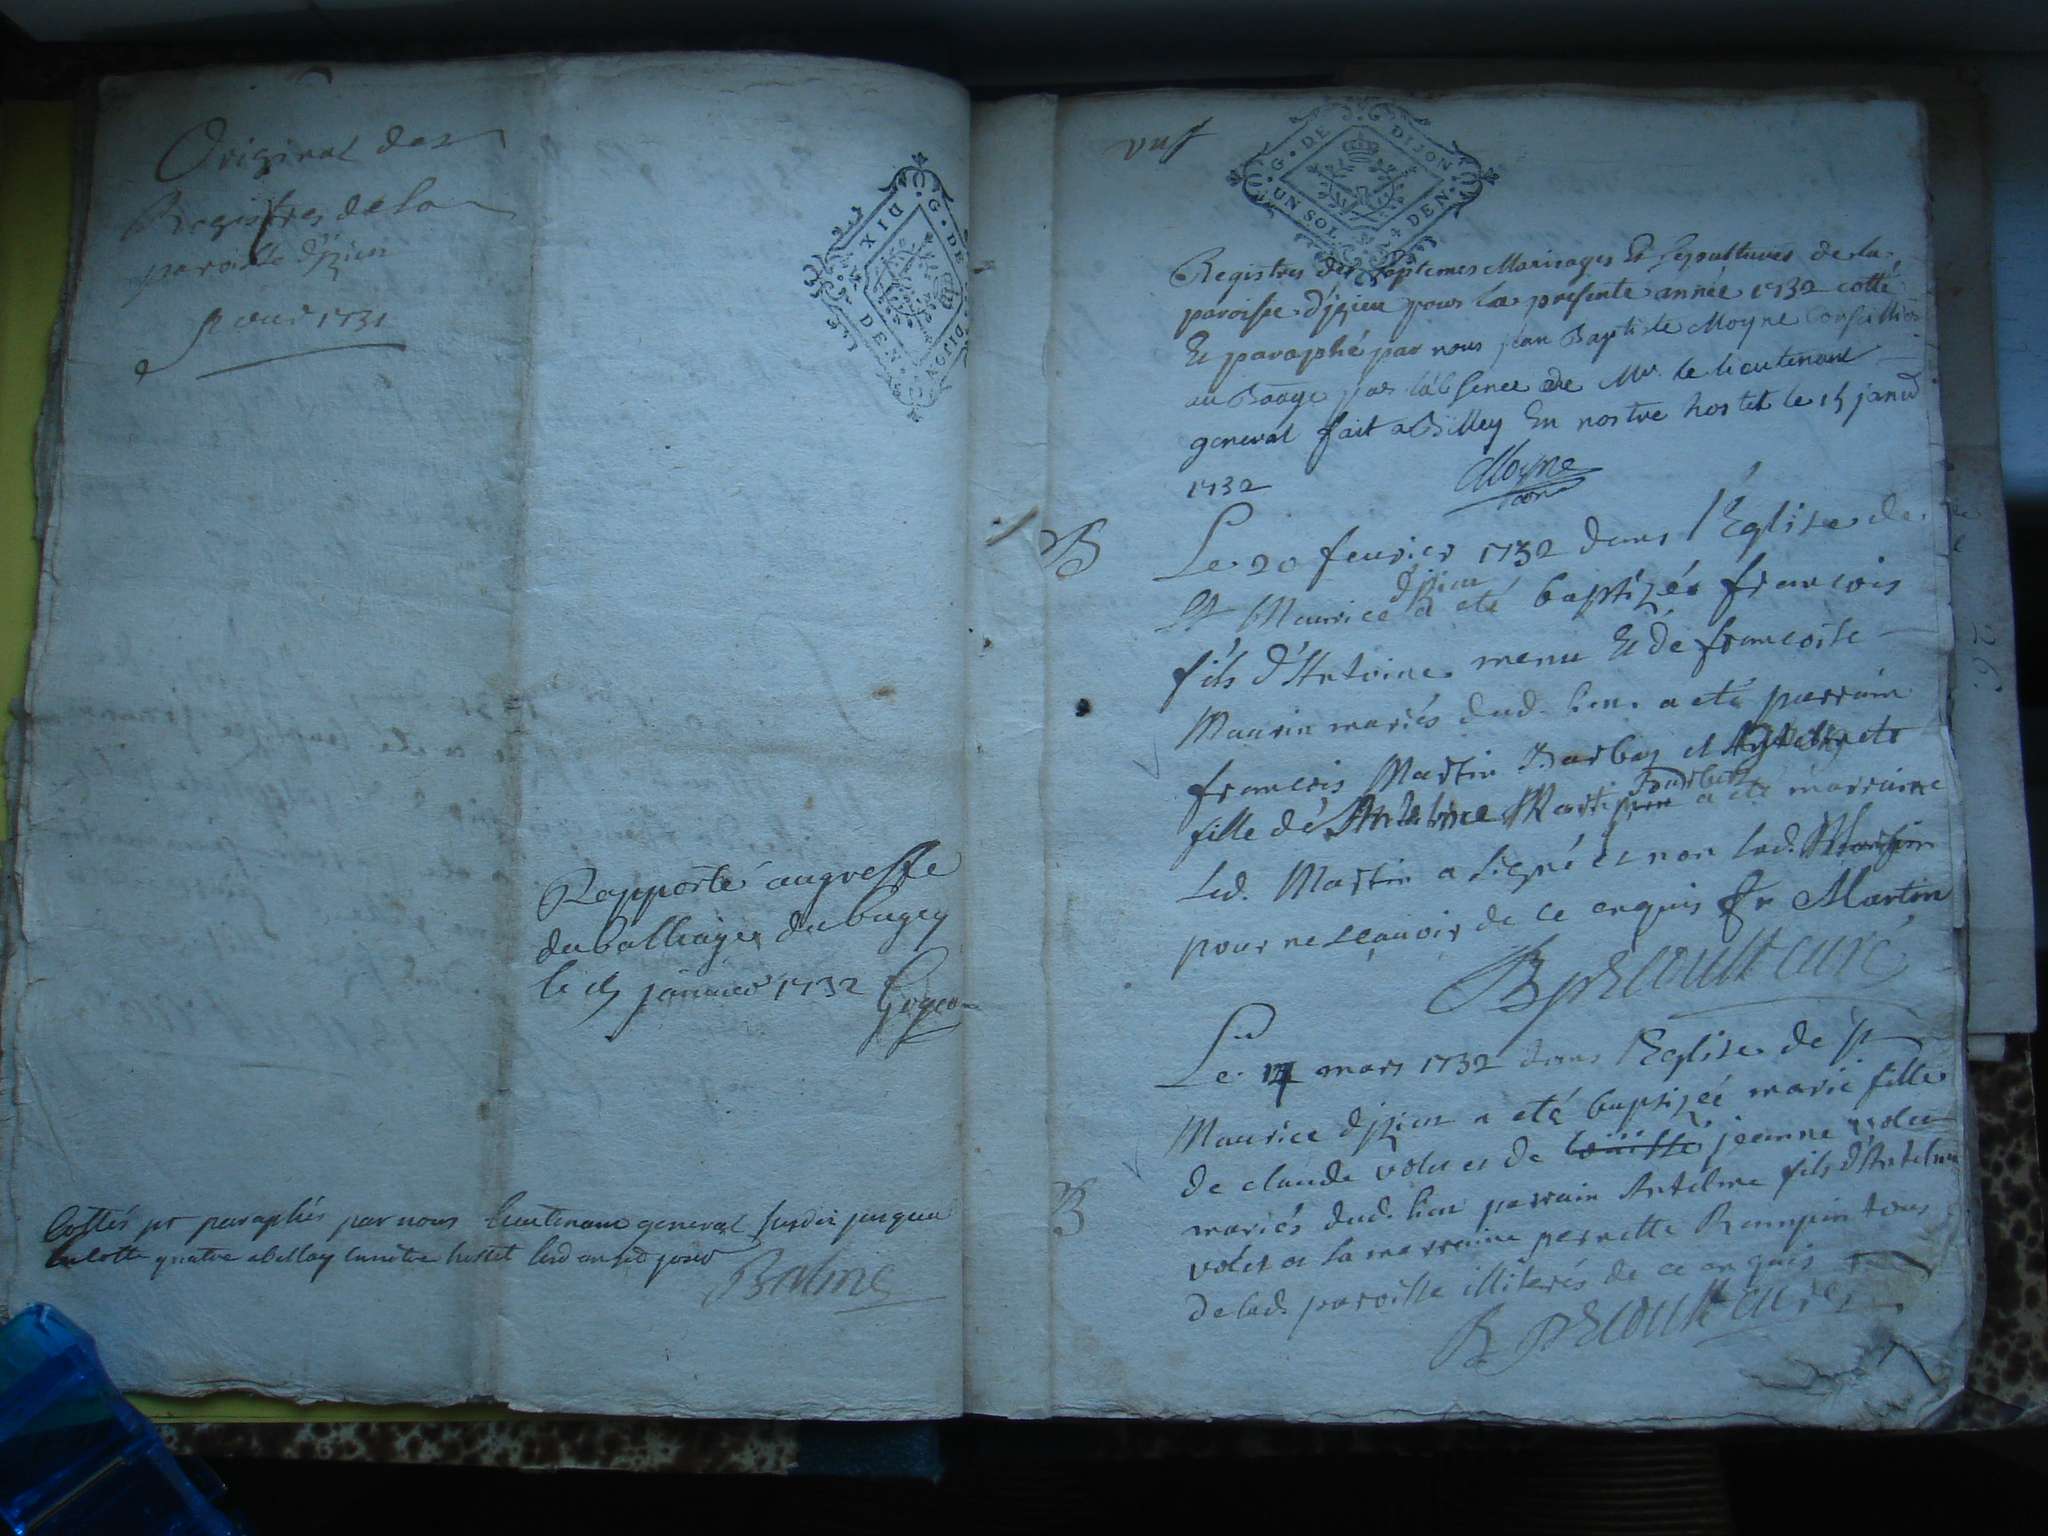 Original des
Registres de la
paroisse d'jzieu
pour 1731
G. DE DIJON
DIX DEN.
Rapporté au greffe
du balliage du bugey
le 15 janvier 1732
Cottés et paraphés par nous lieutenant general susdit jusqua
la cotte quatre a Bellay en nôtre hostel
Balme
vu
G. DE DIJON
UN SOL 4 DEN.
Registres des Baptemes Mariages Et Sepultures de la
paroisse d'jzieu pour la presente année 1732 cotté
Et paraphé par nous jean Baptiste Moyne Conseillier
au par l'absence de Mr le lieutenant
general fait a Belley En nostre hostel le 15 janvr
1732
Moyne
B
Le 20 feurier 1732 dans l'Eglise de
St Maurice d'jzieu a eté baptizé françois
fils d'Antoine menu Et de francoise
Maurin mariés dud. lieu a eté parrain
françois Martin Barbaz et
fille de Martin Barbaz a eté marraine
Led. Martin a signé et non lad. Martin
pour ne sçauoir de ce enquis fr Martin
B précoult curé
Le 14 mars 1732 dans l'Eglise de St
Maurice d'jzieu a eté baptizée marie fille
de claude volet et de jeanne volet
B
mariés dud. lieu parrain Antelme fils d'Antelme
volet et la marraine pernette Rampin tous
de lad. paroisse illiterés de ce enquis
B précoult curé